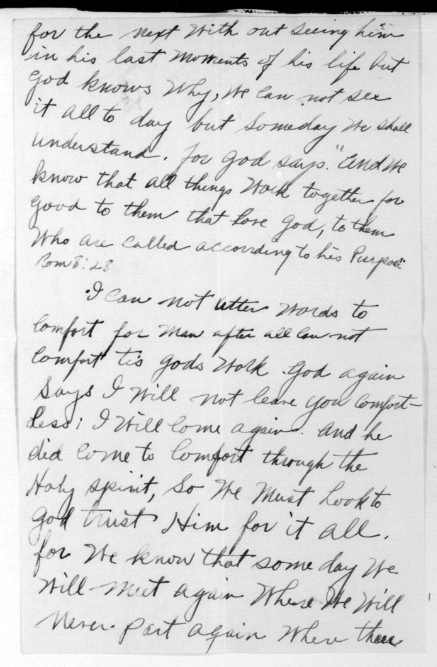 for the next with out seeing him
in his last moments of his life but
God knows Why, We can not see
it all to day but Someday We shall
understand. for god says. "And We
know that all things Work together for
good to them that love God, to them
Who are called according to his Purpose"
Rom 8:28
I can not utter words to
comfort for man after all can not
comfort tis gods Work. God again
Says I Will not leave you comfort-
less; I Will come again. And he
did come to comfort through the
Holy spirit, So We Must look to
god trust Him for it all.
for We know that some day We
Will meet again Where We Will
never part again Where there